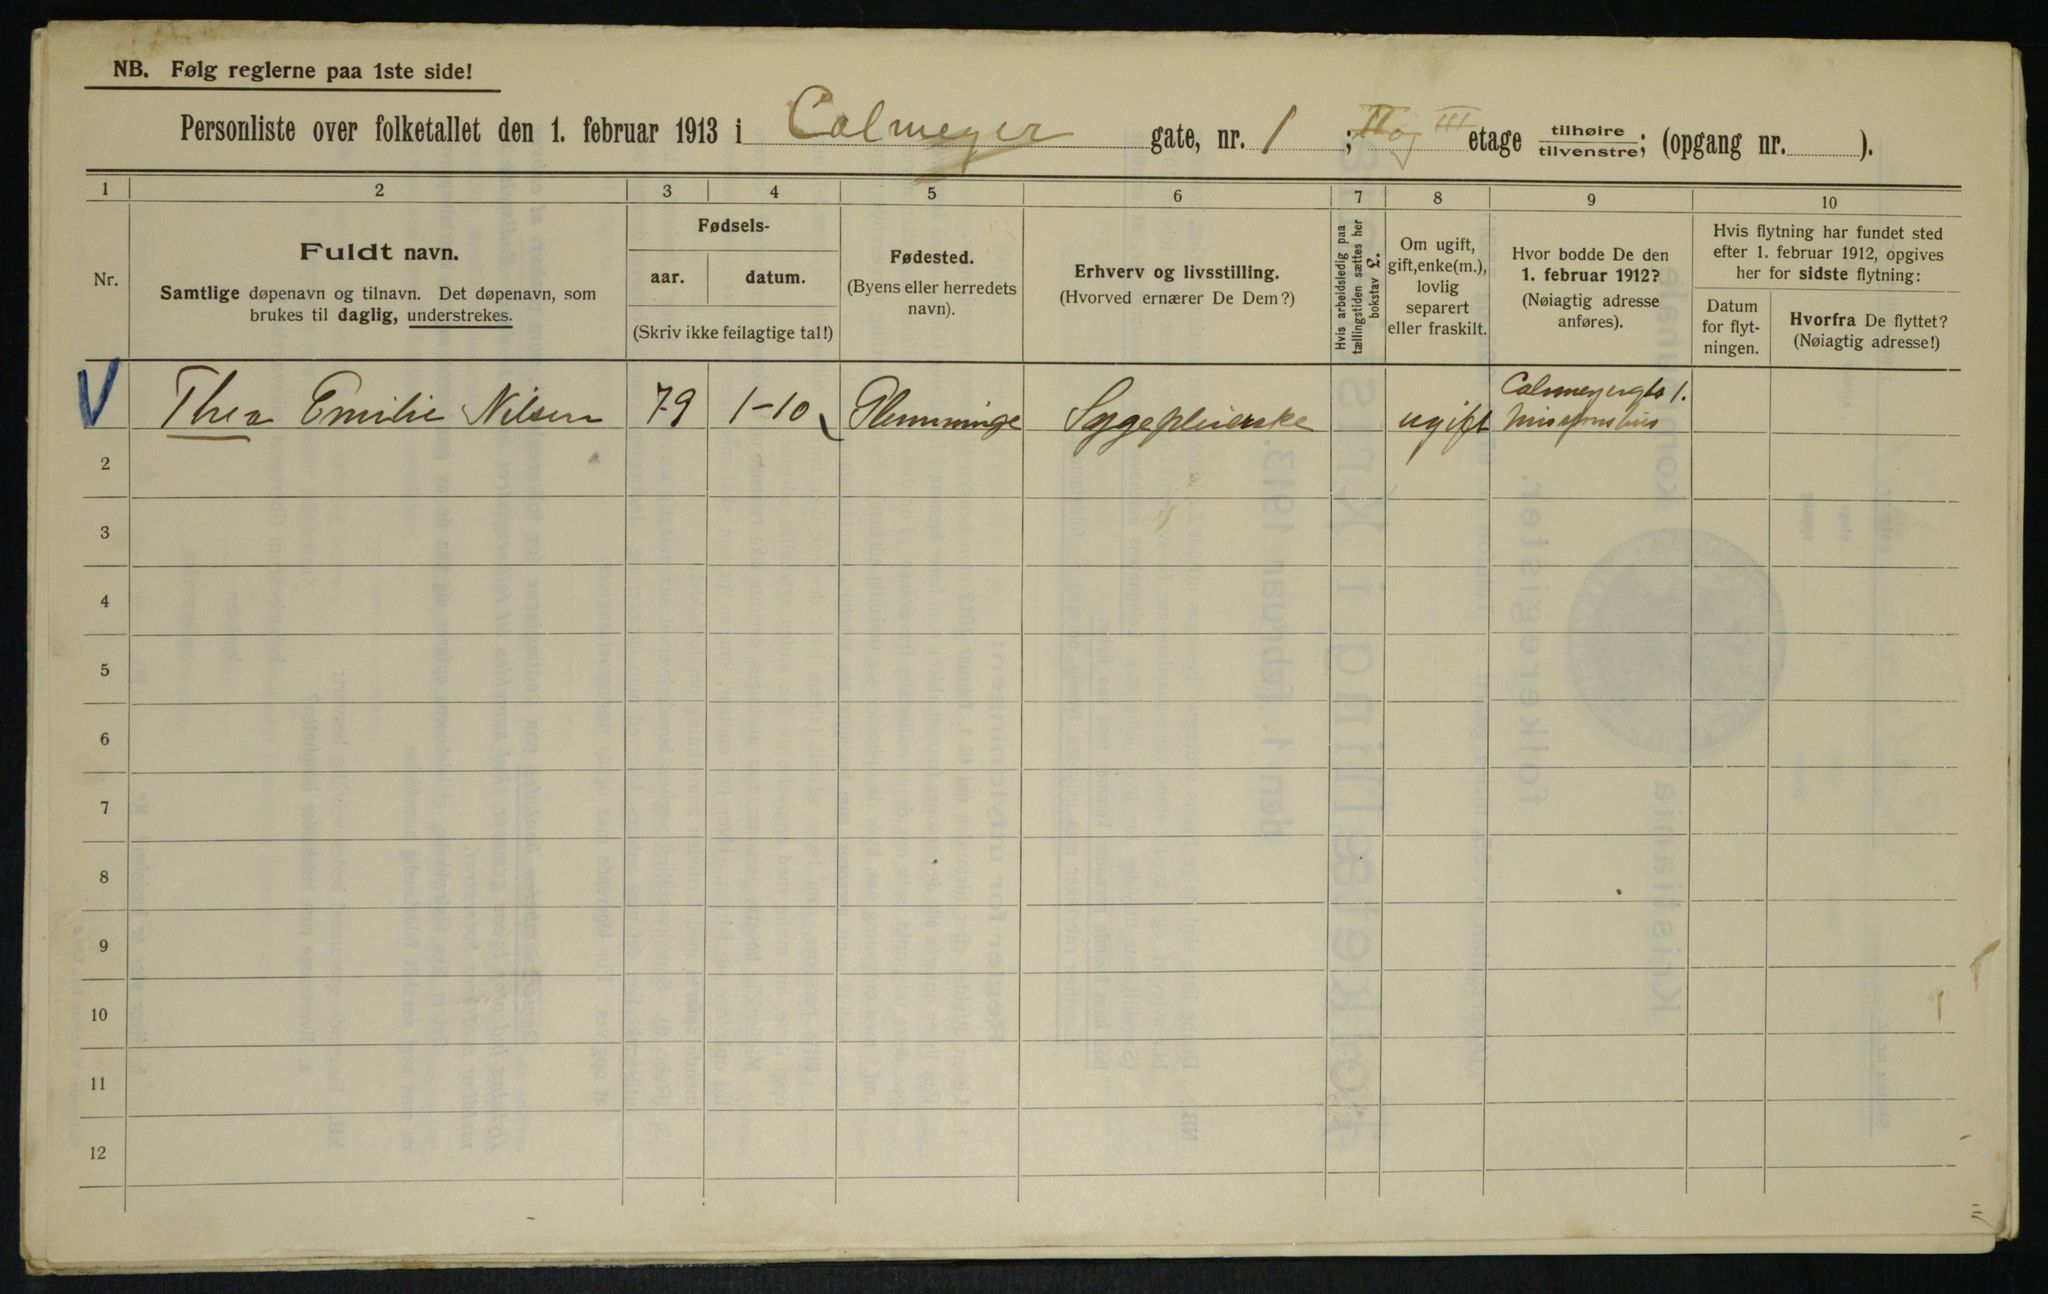 NB. Følg reglerne paa 1ste side!
Personliste over folketallet den 1. februar 1913 i Calmeyer gate, nr. 1 ; II og III etage tilhøire tilvenstre; (opgang nr. ).
1 2 3 4 5 6 7 8 9 10
Nr.
Fuldt navn.
Samtlige døpenavn og tilnavn. Det døpenavn, som
brukes til daglig, understrekes.
Fødsels-
aar. datum.
(Skriv ikke feilagtige tal!)
Fødested.
(Byens eller herredets
navn).
Erhverv og livsstilling.
(Hvorved ernærer De Dem?)
Hvis arbeidsledig paa
tællingstiden sættes her
bokstav L.
Om ugift,
gift, enke(m.),
lovlig
separert
eller fraskilt.
Hvor bodde De den
1. februar 1912?
(Nøiagtig adresse
anføres).
Hvis flytning har fundet sted
efter 1. februar 1912, opgives
her for sidste flytning:
Datum
for flyt-
ningen.
Hvorfra De flyttet?
(Nøiagtig adresse!)
V Thea Emilie Nilsen 79 1-10 Glemminge Sygepleierske ugift Calmeyergt 1.
Missionshus
2
3
4
5
6
7
8
9
10
11
12